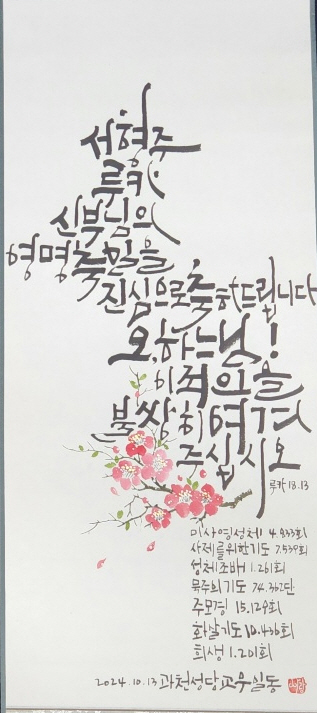 서형주
루카
신부님의
영명축일을
진심으로축하드립니다
오,하느님!
이죄인을
불쌍히여겨
주십시오
루카 18.13
미사영성체 4.933회
사제를위한기도 7.539회
성체조배 1.261회
묵주의기도 74.362단
주모경 15.129회
화살기도 10.436회
희생 1.201회
2024.10.13 과천성당교우일동